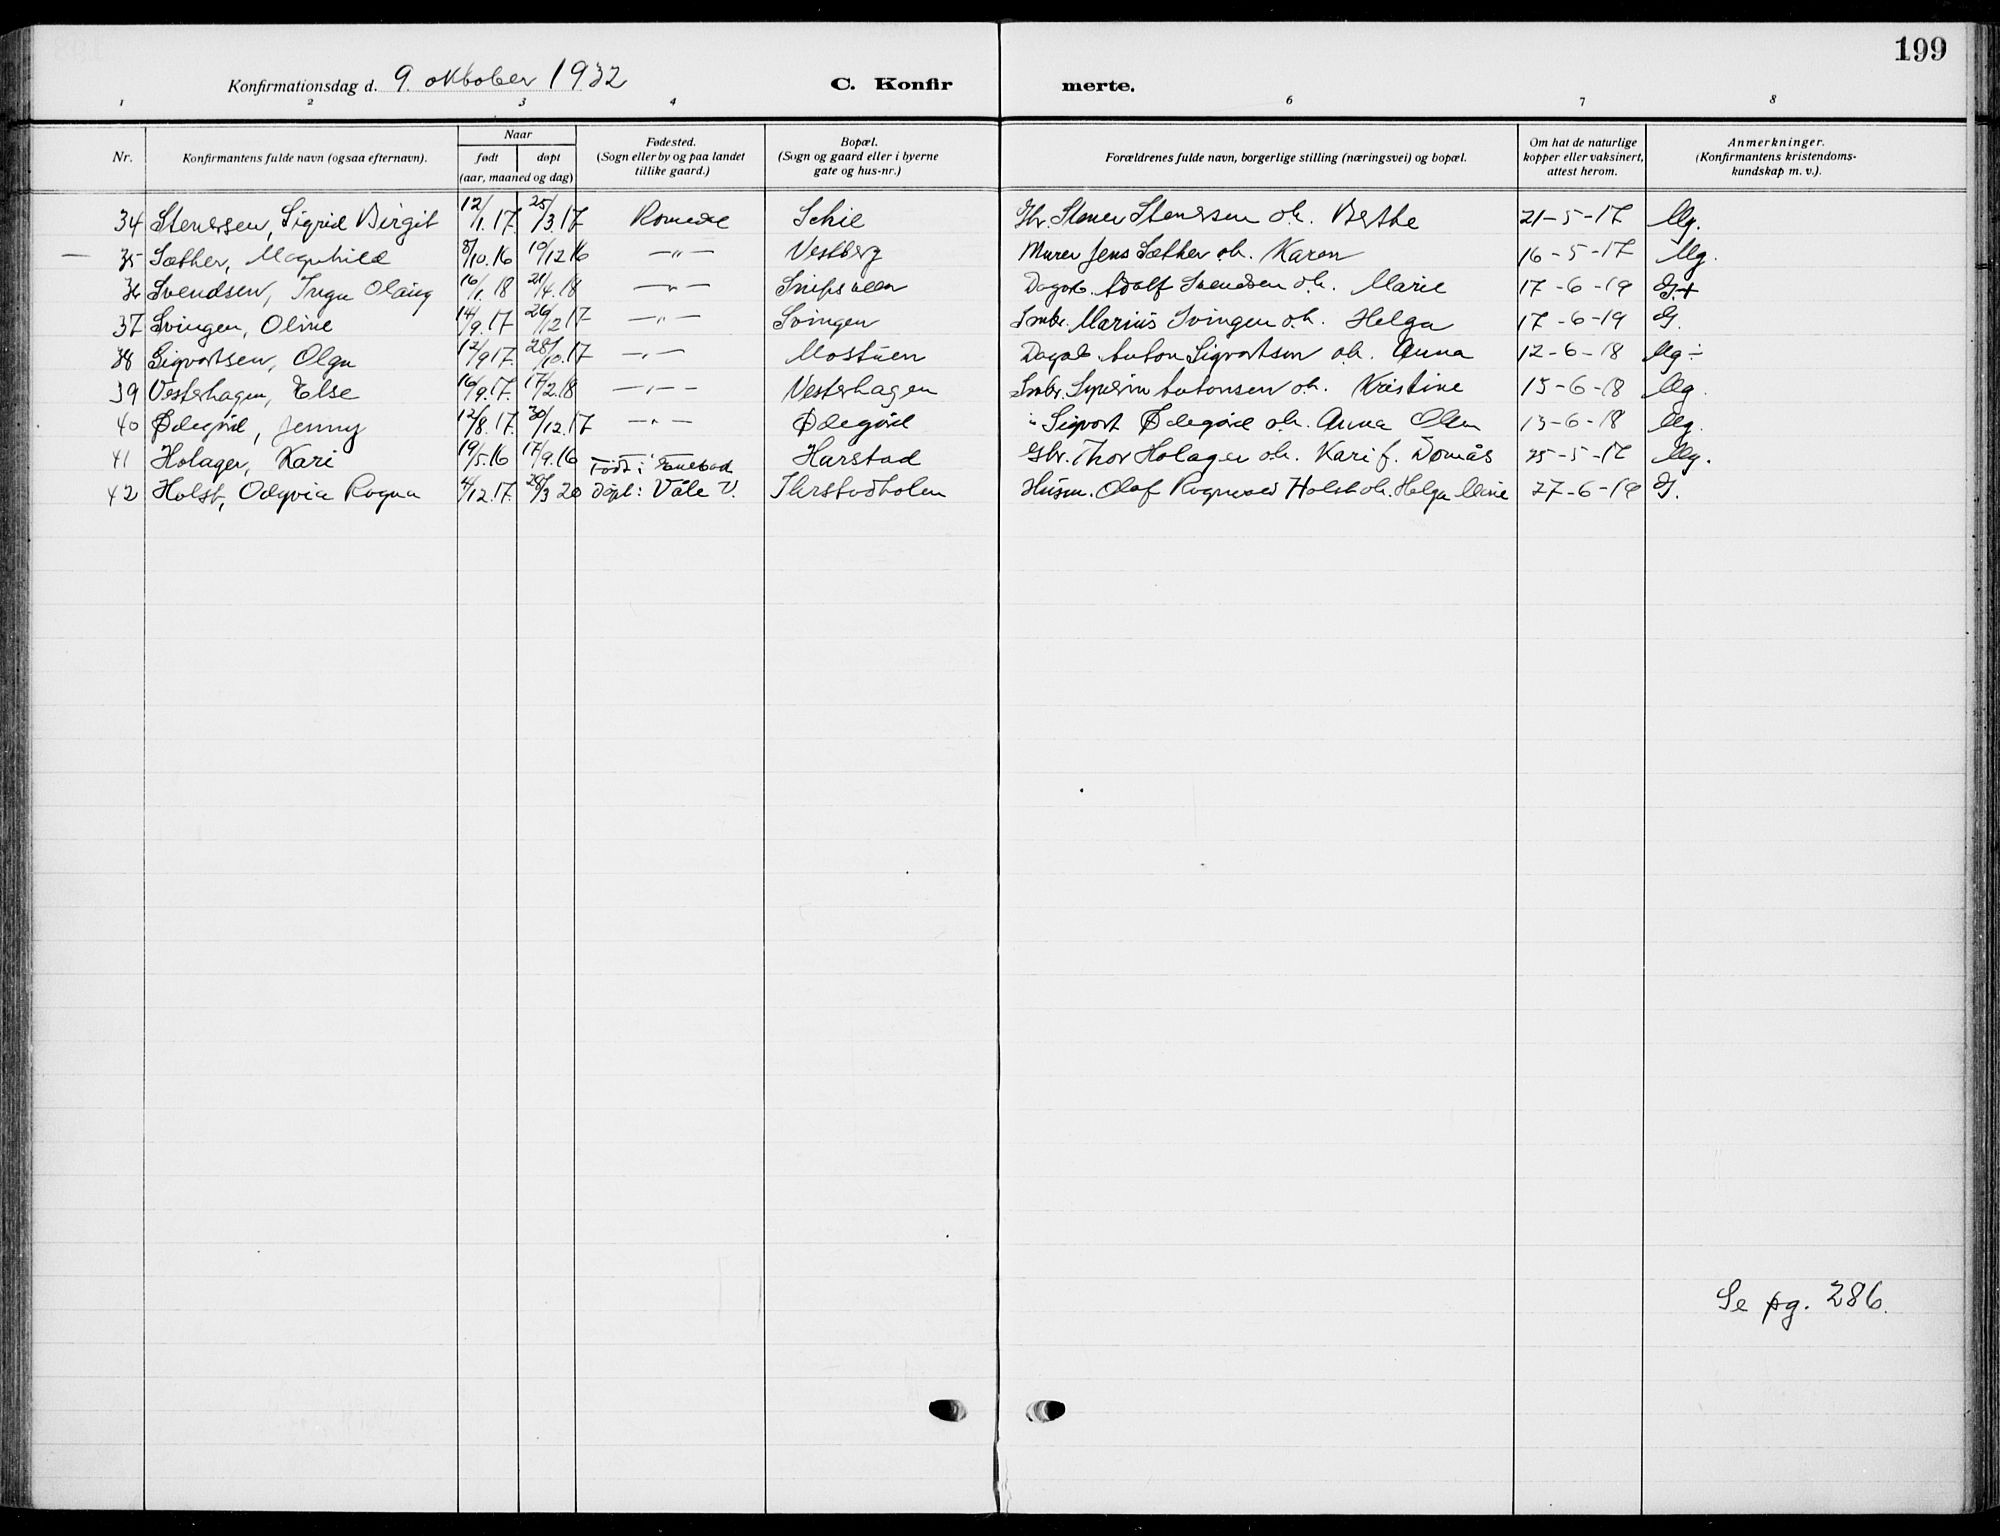 199
Konfirmationsdag d. 9. oktober 1932 C. Konfirmerte.
1 2 3 4 6 7 8
Nr. Konfirmantens fulde navn (ogsaa efternavn). Naar født døpt (aar, maaned og dag) Fødested. (Sogn eller by og paa landet tillike gaard.) Bopæl. (Sogn og gaard eller i byerne gate og hus-nr.) Forældrenes fulde navn, borgerlige stilling (næringsvei) og bopæl. Om hat de naturlige kopper eller vaksinert, attest herom. Anmerkninger. (Konfirmantens kristendoms-kundskap m. v.).
34 Stenersen, Sigrid Birgit 12/1.17. 25/3.17 Romedal Schie Gbr. Stener Stenersen oh. Berthe 21-5-17 Mg.
— 35 Sæther, Magnhild 8/10.16 19/12 16 —"— Vestberg Murer Jens Sæther oh. Karen 16-5-17 Mg.
36 Svendsen, Inga Olaug 16/1.18 21/4.18 —"— Dagarb. Adolf Svendsen oh. Marie 17-6-19 G.+
37 Svingen, Oline 14/9.17. 26/12 17 —"— Svingen Smbr. Marius Svingen oh. Helga 17-6-19 G.
38 Sigvartsen, Olga 12/9 17. 28/10.17 —"— Mostuen Dagarb. Anton Sigvartsen oh. Anna 12-6-18 Mg÷
39 Vesterhagen, Else 16/9.17. 17/2.18 —"— Vesterhagen Smbr. Severin Antonsen oh. Kristine 15-6-18 Mg.
40 Ødegård, Jenny 12/8.17. 30/12.17 —"— Ødegård " Sigvart Ødegård oh. Anna Olsen 13-6-18 Mg.
41 Holager, Kari 19/5.16 17/9.16 Født i Harstad Gbr. Thor Holager oh. Kari f. Dømås 25-5-17 Mg.
42 Holst, Odgvia Ragna 4/12.17. 28/3 20 Døpt: Våle V. Husm. Olaf Holst oh. Helga 27-6-19 G.
Se pg. 286.